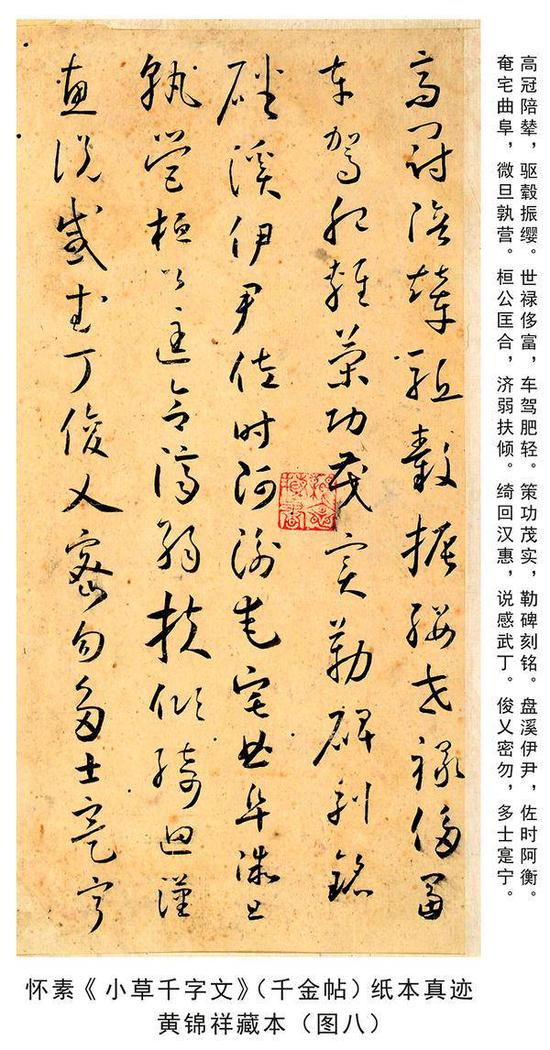 高冠陪辇，驱毂振缨。世禄侈富，车驾肥轻。策功茂实，勒碑刻铭。盘溪伊尹，佐时阿衡。
奄宅曲阜，微旦孰营。桓公匡合，济弱扶倾。绮回汉惠，说感武丁。俊乂密勿，多士寔宁。
高冠陪輦驅轂振纓世祿侈富
車駕肥輕策功茂實勒碑刻銘
磻溪伊尹佐時阿衡奄宅曲阜微旦
孰營桓公匡合濟弱扶傾綺迴漢
惠說感武丁俊乂密勿多士寔寧
怀素《小草千字文》（千金帖）纸本真迹
黄锦祥藏本（图八）